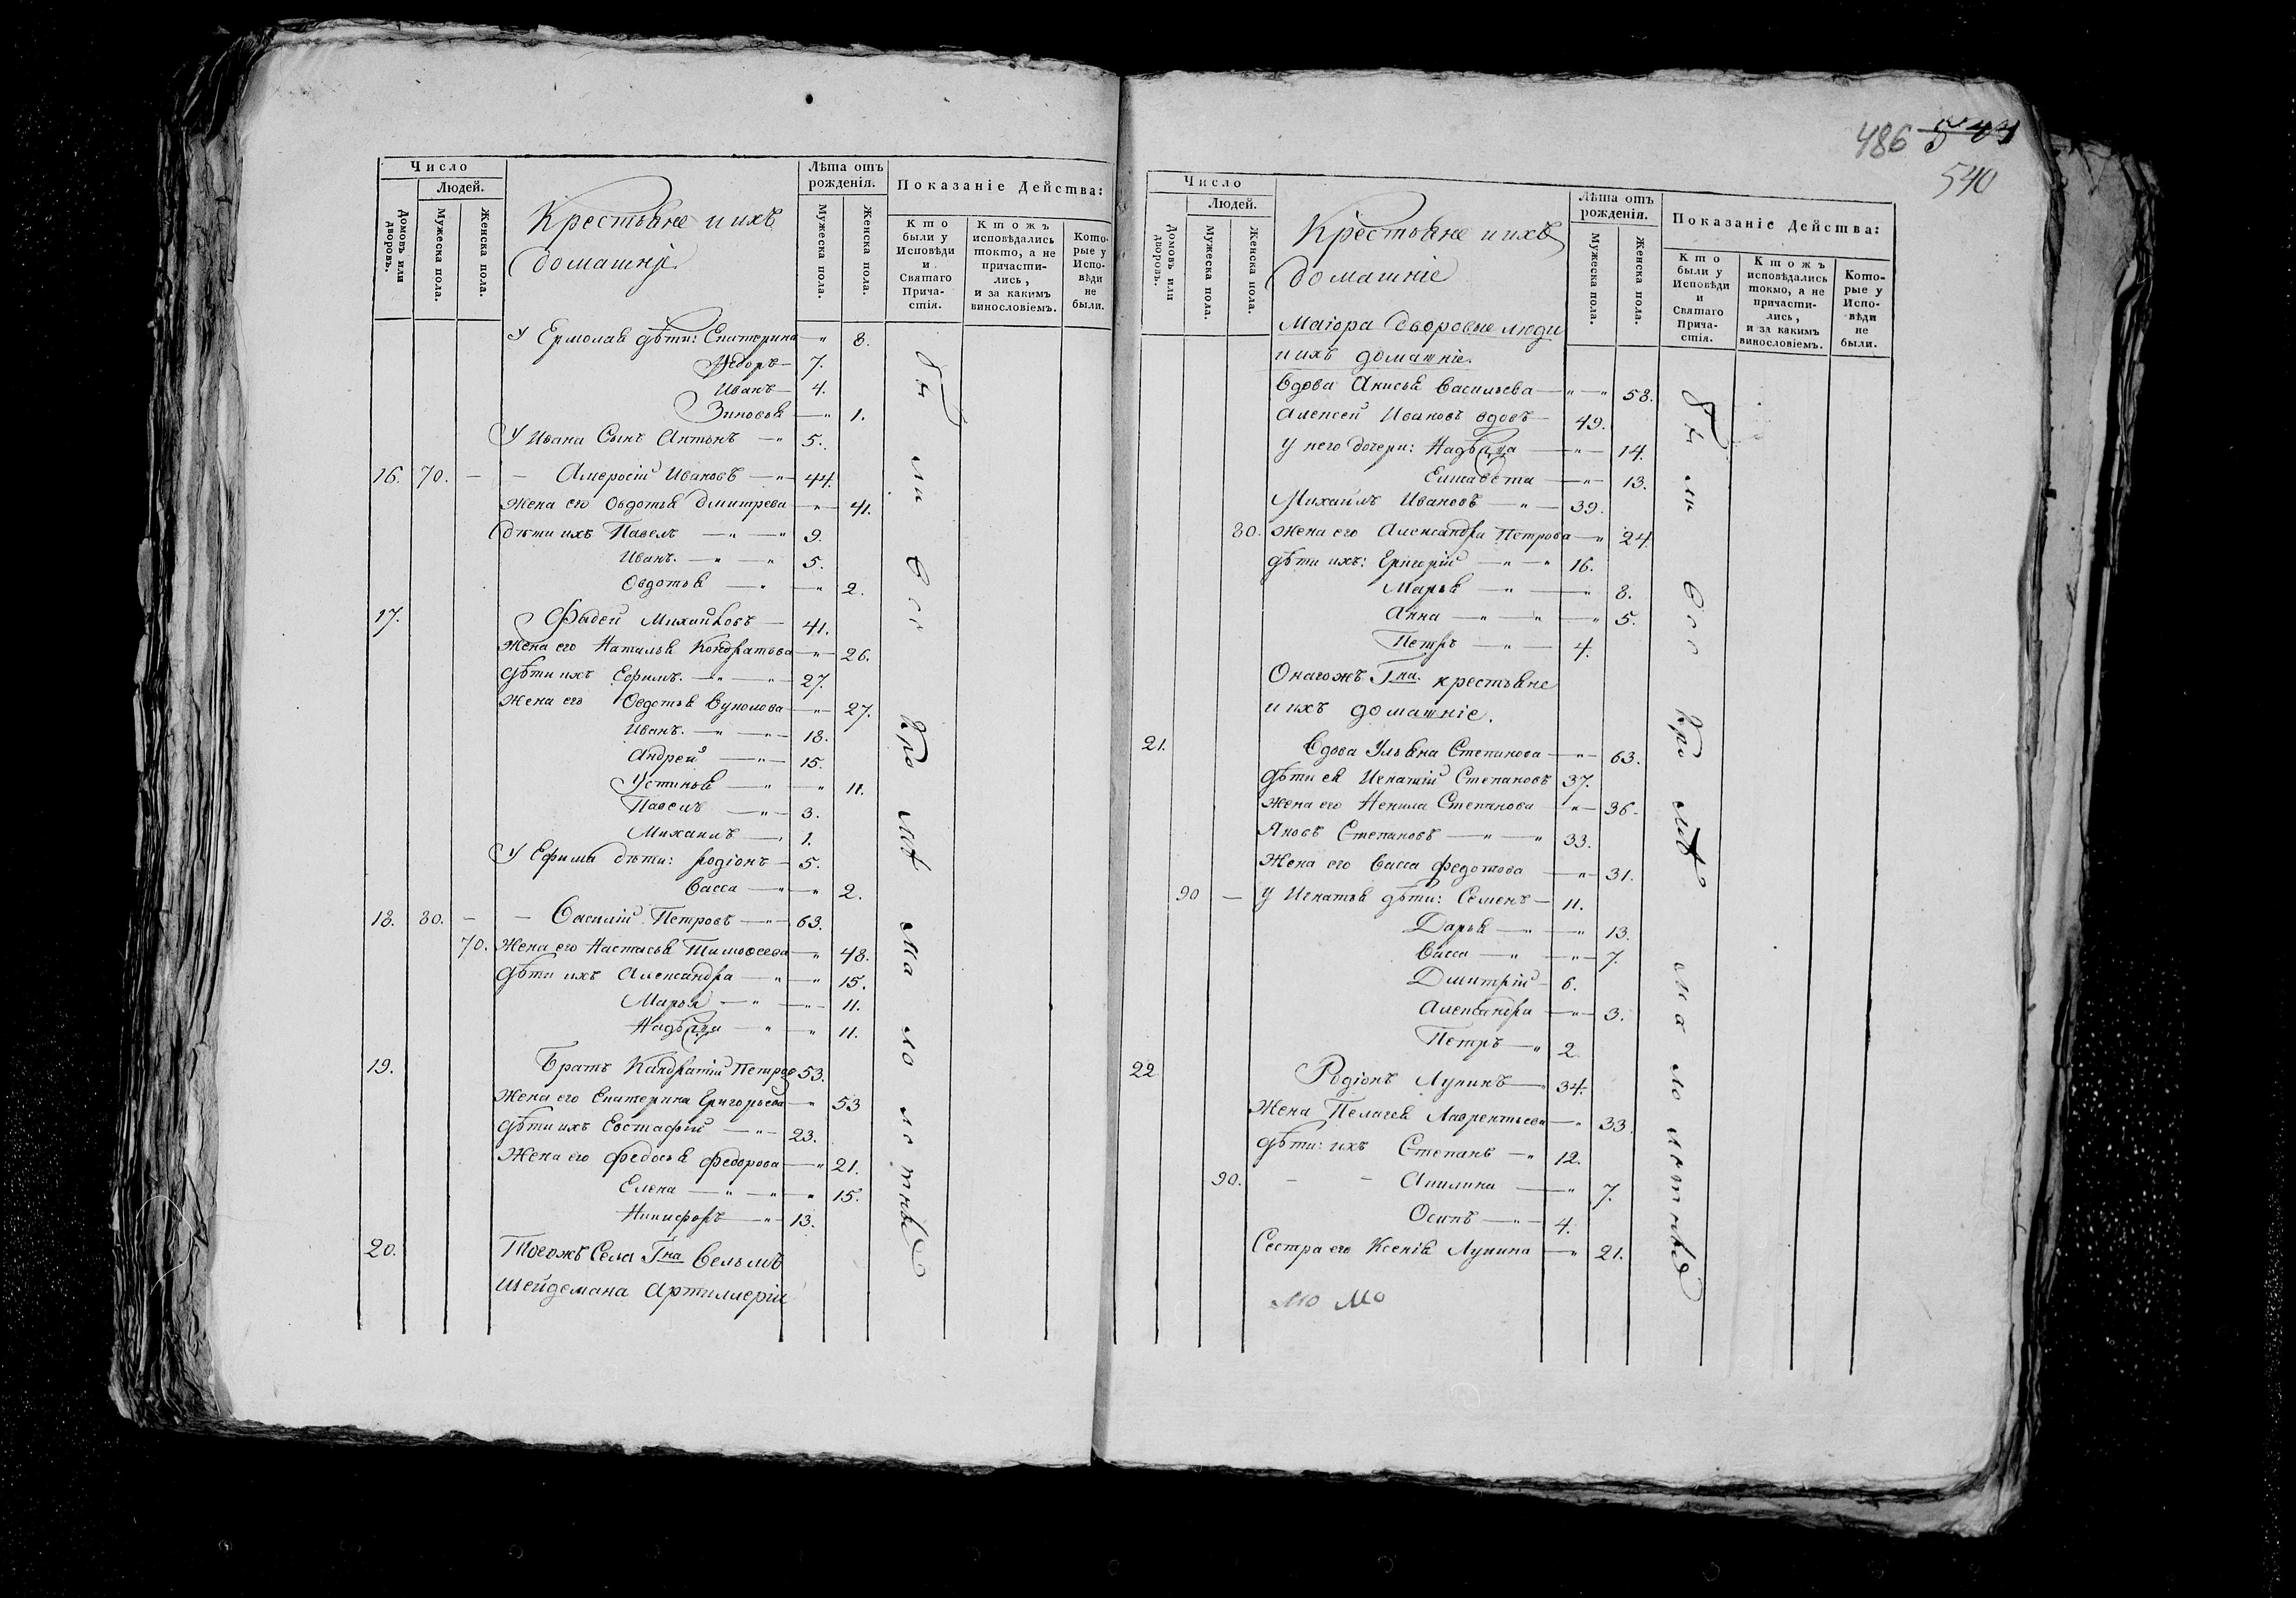 Число
Людей.
Домовъ или дворовъ.
Мужеска пола.
Женска пола.
Крестьяне и ихъ
домашніе
Лѣта отъ рожденія.
Мужеска пола.
Женска пола.
Показаніе Действа:
Кто были у Исповѣди и Святаго Причастія.
Ктожъ исповѣдались токмо, а не причастились, и за какимъ винословіемъ.
Которые у Исповѣди не были.
У Ермолая дѣти: Екатерина — " 8.
Ѳедоръ — 7.
Иванъ — 4.
Зиновья — " 1.
У Ивана Сынъ Антонъ — " 5.
16. 70. — — Амвросій Ивановъ — " — 44.
Жена его Овдотья Дмитрева — " — 41.
Дѣти ихъ Павелъ — " — " 9.
Иванъ. — " — " 5.
Овдотья — " — " 2.
17. Фадей Михайловъ — 41.
Жена его Наталья Кондратьева — " — 26.
Дѣти ихъ Ефимъ. — " — " — 27.
Жена его Овдотья — " — 27.
Иванъ. — " — " — 18.
Андрей — " — 15.
Устинья — " — " 11.
Павелъ — " — 3.
Михаилъ — " 1.
У Ефима дѣти: Родіонъ — 5.
Васса — " — " 2.
18. 80. — — Василій Петровъ — " — 63.
70. Жена его Настасья Тимофеева — " 48.
Дѣти ихъ Александра — " — " 15.
Марья — " — " — 11.
Надѣжда — " — " 11.
19. Братъ Кандратій Петров 53.
Жена его Екатерина Григорьева — " 53
Дѣти ихъ Евстафій — " — 23.
Жена его Федосья Федорова — " 21.
Елена — " — " — " 15.
Никифоръ — " — 13.
20. Тогожъ Села Гна Вельлмъ
Шейдемана Артиллеріи
были все кромѣ малолетныхъ
486
540
Число
Людей.
Домовъ или дворовъ.
Мужеска пола.
Женска пола.
Крестьяне и ихъ
домашніе
Лѣта отъ рожденія.
Мужеска пола.
Женска пола.
Показаніе Действа:
Кто были у Исповѣди и Святаго Причастія.
Ктожъ исповѣдались токмо, а не причастились, и за какимъ винословіемъ.
Которые у Исповѣди не были.
Маіора дворовые люди
и ихъ домашніе.
Вдова Анисья Васильева — " — " 58.
Алексей Ивановъ вдовъ — 49.
У него дочери: Надѣжда — " — 14.
Елисавета — " — 13.
Михаилъ Ивановъ — " — 39.
80. Жена его Александра Петрова — " 24.
Дѣти ихъ: Григорій — " — " 16.
Марья — " — " 8.
Анна — " — " — " 5.
Петръ — " — 4.
Онагожъ Гна. крестьяне
и ихъ домашніе.
21. Вдова Ульяна Степанова — " — 63.
Дѣти ея Игнатій Степановъ 37.
Жена его Ненила Степанова " — 36.
Яковъ Степановъ — " — " 33.
Жена его Васса Федотова — " — 31.
90 — У Игнатья дѣти: Семенъ — 11.
Дарья — " — " 13.
Васса — " — " — 7.
Дмитрій — 6.
Александра — " — 3.
Петръ — " 2.
22 Родіонъ Лупинъ — 34.
Жена Пелагея Лаврентьева — " 33.
Дѣти: ихъ Степанъ — " 12.
90. — — Акилина — " 7.
Осипъ — " — 4.
Сестра его Ксенія Лупина — " 21.
были все кромѣ малолетныхъ